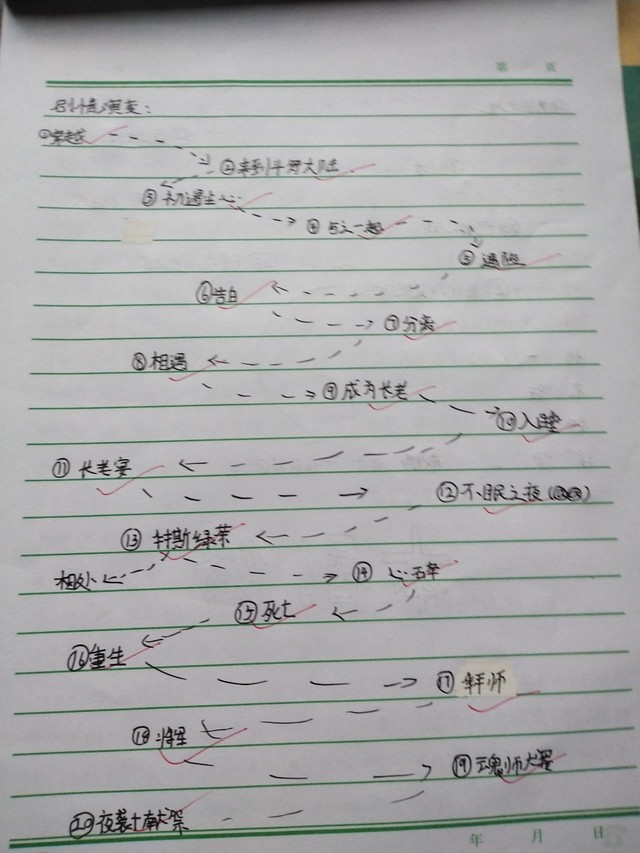 第 页
剧情演变:
①穿越
②来到斗罗大陆
③初遇
④与之一起
⑤遇险
⑥告白
⑦分离
⑧相遇
⑨成为长老
⑩入睡
⑪长老宴
⑫不眠之夜
⑬绿茶
相处
⑭
⑮死亡
⑯重生
⑰拜师
⑱将军
⑲魂师大赛
⑳夜袭+献祭
年 月 日